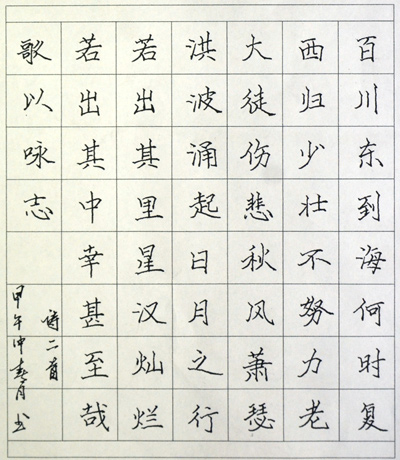 百川东到海何时复
西归少壮不努力老
大徒伤悲秋风萧瑟
洪波涌起日月之行
若出其里星汉灿烂
若出其中幸甚至哉
歌以咏志
诗二首
甲午仲春月书